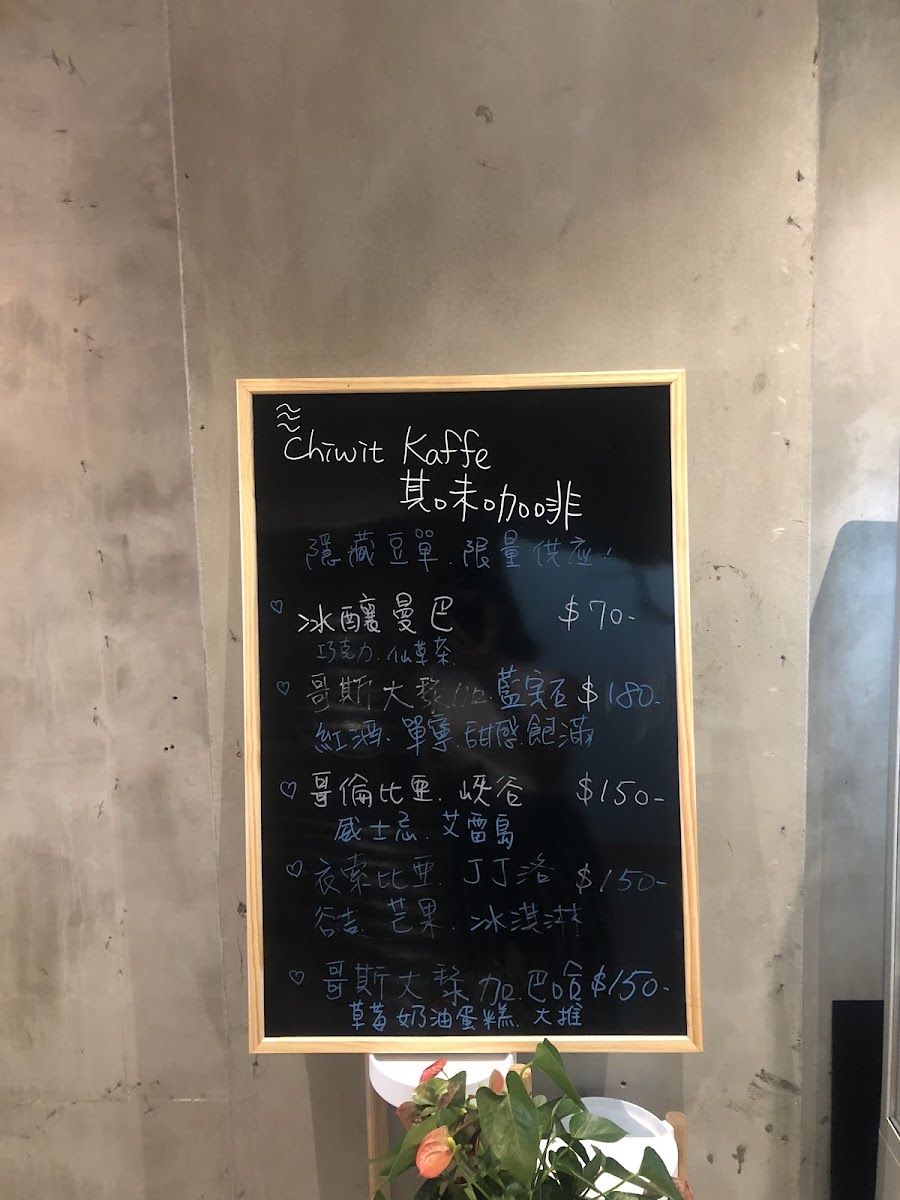 Chiwit Kaffe
其味咖啡
隱藏豆單.限量供应!
冰釀曼巴 $70-
巧克力.仙草茶
哥斯大黎加.藍宝石 $180-
紅酒.單寧.甜感.飽滿
哥倫比亞.峽谷 $150-
威士忌.艾雷島
衣索比亞.丁丁洛 $150-
谷吉.芒果.冰淇淋
哥斯大黎加.巴哈 $150-
草莓奶油蛋糕.大推